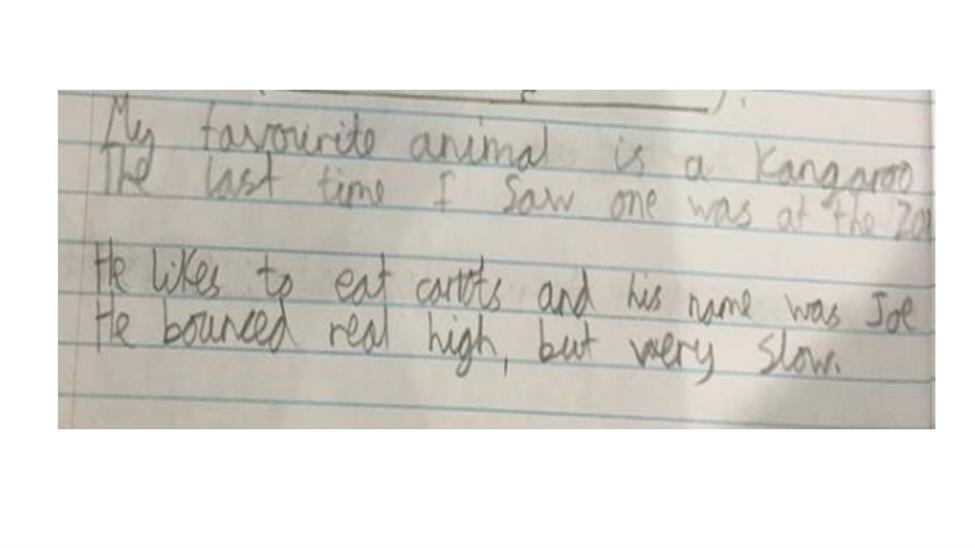 My favourite animal is a Kangaroo
The last time I Saw one was at the Zoo
He likes to eat carrots and his name was Joe
He bounced real high, but very slow.